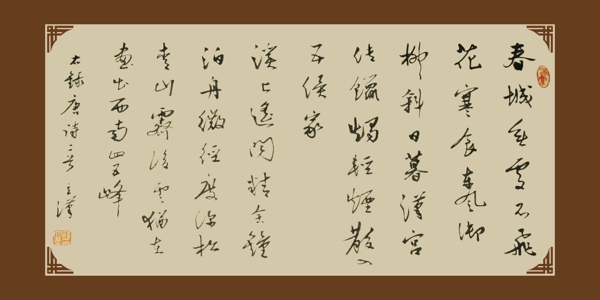 春城無處不飛
花寒食東風御
柳斜日暮漢宮
傳蠟燭輕煙散入
五侯家
溪上遙聞精舍鐘
泊舟微徑度深松
青山霽後雲猶在
畫出西南四五峰
右錄唐詩二首